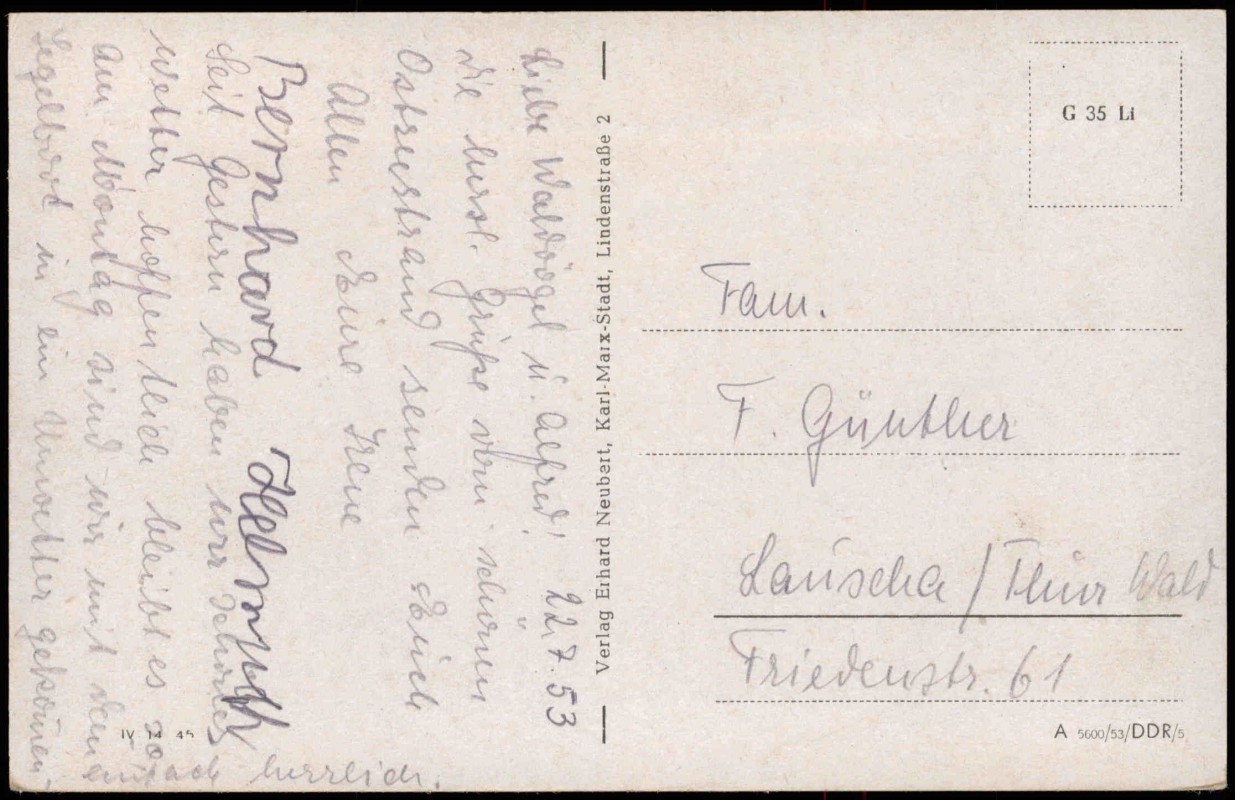 Liebe Waldvögel u. Alfred! 22.7.53
die herzl. Grüße vom schönen
Ostseestrand senden Euch
Allen Eure Irene
Bernhard Helmuth
Seit Gestern haben wir schönes
Wetter hoffentlich bleibt es so
am Montag sind wir mit dem
Segelboot in ein Unwetter gekommen.
einfach herrlich.
Verlag Erhard Neubert, Karl-Marx-Stadt, Lindenstraße 2
G 35 Li
Fam.
F. Günther
Lauscha / Thür Wald
Friedenstr. 61
IV 14 45
A 5600/53/DDR/5